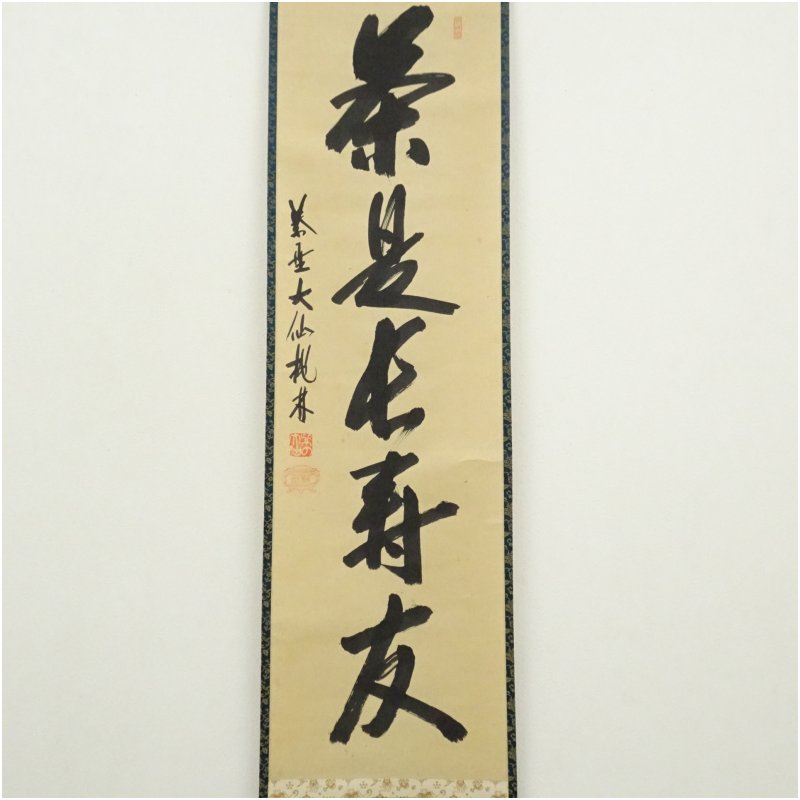 茶是長寿友
紫野大仙桃林